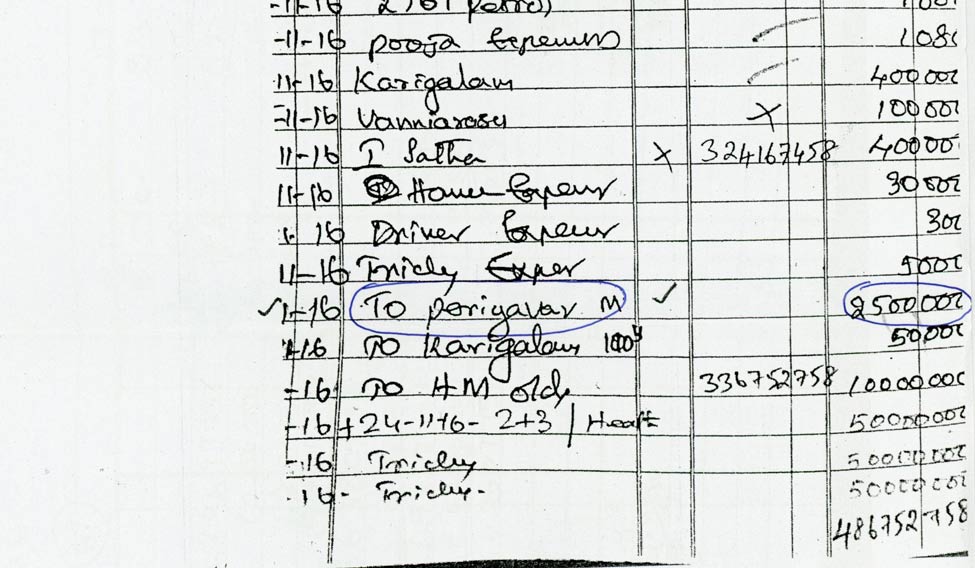 -11-16
-11-16 pooja Expenses 1081
11-16 Karigalam 400000
-11-16 Vanniarasu x 100000
11-16 T Satha x 324167458 400000
11-16 House Expens 30000
16 Driver Expens 300
11-16 Trichy Exper 5000
✓ 1-16 To perigavar M ✓ 2500000
1-16 TO Karigalam 50000
-16 TO HM old 336752758 10000000
-16 + 24-11-16- 2+3 / Health 50000000
-16 Trichy 50000000
-16- Trichy- 50000000
486752758